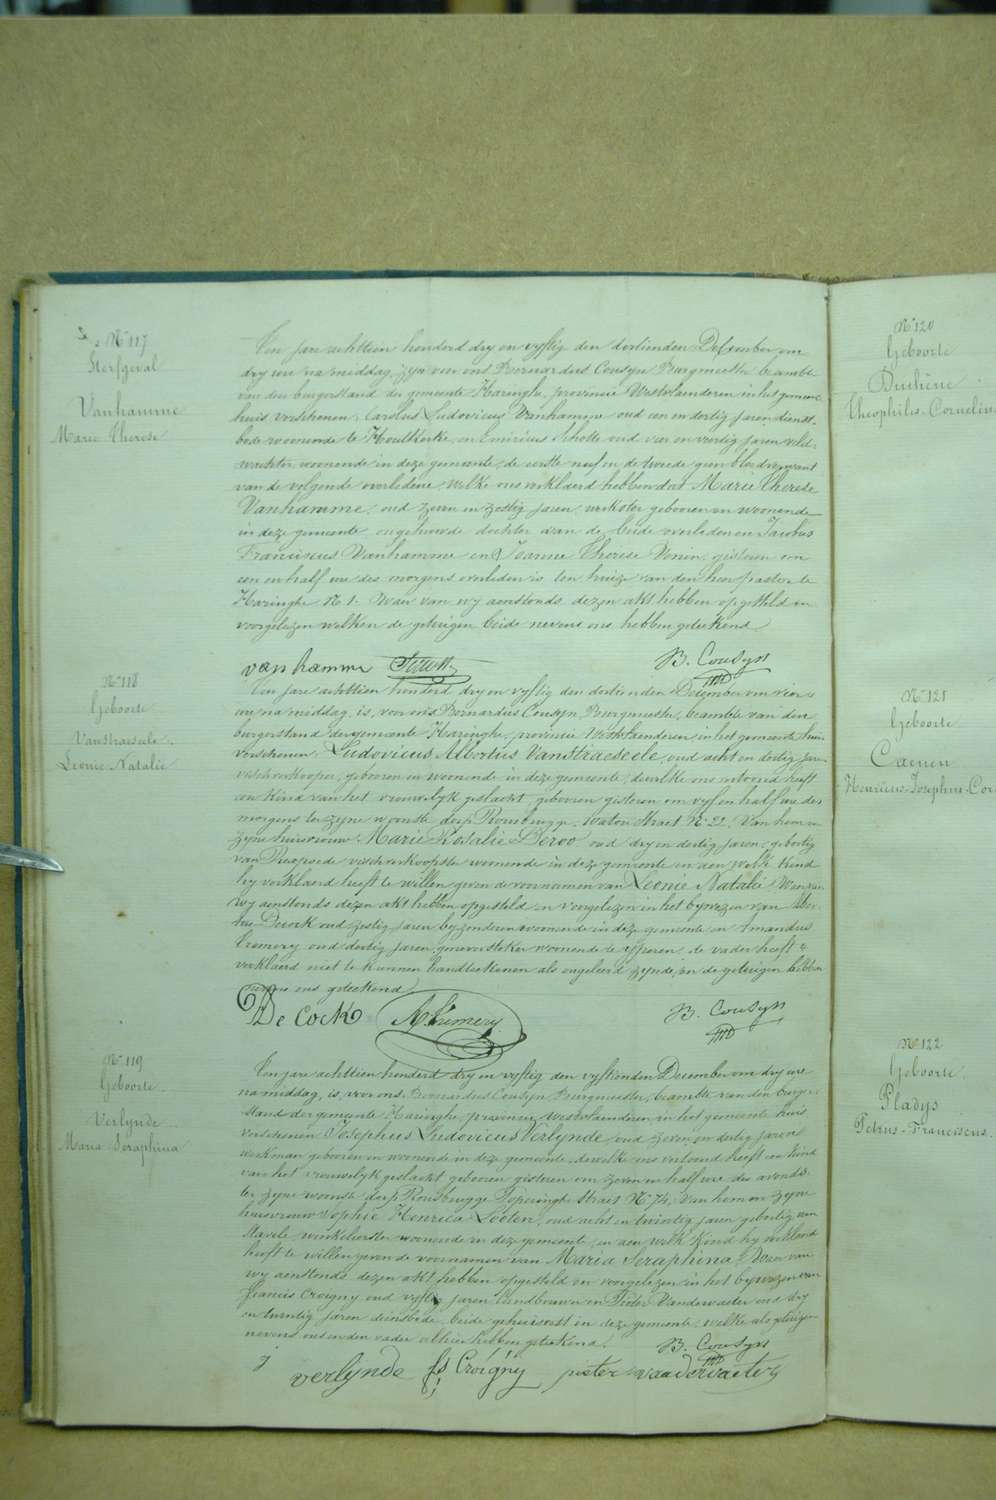 N° 117
Sterfgeval
Vanhamme
Marie Therese
Ten jare achttien honderd dry en vyftig den dertienden December om
dry ure na middag, zyn voor ons Bernardus Cousyn Burgmeester beambte
van den burgerstand der gemeente Haringhe, provincie Westvlaenderen in het gemeente
huis verschenen Carolus Ludovicus Vanhamme oud een en dertig jaren, dienst-
bode woonende te Houtkerke, en Emericus Scholte oud vier en veertig jaren veld-
wachter, woonende in deze gemeente, de eerste neef en de tweede geen bloedverwant
van de volgende overledene, welke ons verklaerd hebben dat Marie Therese
Vanhamme, oud zeven en zestig jaren, werkster geboren en woonende
in deze gemeente ongehuwde dochter van de beide overledenen Jacobus
Franciscus Vanhamme en Joanne Therese Venin, gisteren om
een en half ure des morgens overleden is ten huize van den heer pastor te
Haringhe N. 1. Waer van wy aenstonds dezen akt hebben opgesteld en
voorgelezen welken de getuigen beide nevens ons hebben geteekend
vanhamme B. Cousyn
N° 118
Geboorte
Vanstraeseele
Leonie Natalie
Ten jare achttien honderd dry en vyftig den dertienden December om vier
ure na middag, is, voor ons Bernardus Cousyn Burgmeester, beambte van den
burgerstand der gemeente Haringhe, provincie Westvlaenderen, in het gemeente huis
verschenen Ludovicus Albertus Vanstraeseele, oud acht en dertig jaren
vischverkooper, geboren en woonende in deze gemeente, dewelke ons vertoond heeft
een kind van het vrouwelyk geslacht, geboren gisteren om vyf en half ure des
morgens ter zyne woonste dorp Rousbrugge, Waton Straet N° 22, Van hem en
zyne huisvrouw Marie Rosalie Deroo oud dry en dertig jaren, geboortig
van Reepsede vischverkoopster woonende in deze gemeente en aen welk kind
hy verklaerd heeft te willen geven de voornamen van Leonie Natalie. Waer van
Wy aenstonds dezen akt hebben opgesteld en voorgelezen in het bywezen van
Decock oud zestig jaren byzonderen woonende in deze gemeente en Amandus
Cremery oud dertig jaren, geneverstoker woonende te Yperen, de vader heeft
verklaerd niet te kunnen handteekenen als ongeleerd zynde, en de getuigen hebben
nevens ons geteekend
De Cock A. Cremery B. Cousyn
N° 119
Geboorte
Verlynde
Maria Seraphina
Ten jare achttien honderd dry en vyftig den vyftienden December om dry ure
namiddag, is, voor ons Bernardus Cousyn Burgmeester, beambte van den burger-
stand der gemeente Haringhe, provincie Westvlaenderen in het gemeente huis
verschenen Josephus Ludovicus Verlynde oud zeven en dertig jaren
werkman geboren en woonende in deze gemeente, dewelke ons vertoond heeft een kind
van het vrouwelyk geslacht geboren gisteren om zeven en half ure des avonds
ter zyne woonste dorp Rousbrugge Poperinghe Straet N° 74, Van hem en zyne
huisvrouw Sophie Henrica Looten, oud acht en twintig jaren geboortig van
Stavele winkelierster woonende in deze gemeente, en aen welk kind hy verklaerd
heeft te willen geven de voornamen van Maria Seraphina. Waer van
wy aenstonds dezen akt hebben opgesteld en voorgelezen in het bywezen van
Francis Croigny oud vyftig jaren landbouwer en Pieter Vandewaeter oud dry
en twintig jaren dienstbode, beide gehuisvest in deze gemeente, welke als getuigen
nevens ons en den vader alhier hebben geteekend.
B. Cousyn
verlynde fs Croigny pieter vandewaeter
N° 120
Geboorte
Duchêne
Theophilus-Cornelius
N° 121
Geboorte
Caenen
Henricus-Josephus-Cor
N° 122
Geboorte
Pladys
Petrus-Franciscus